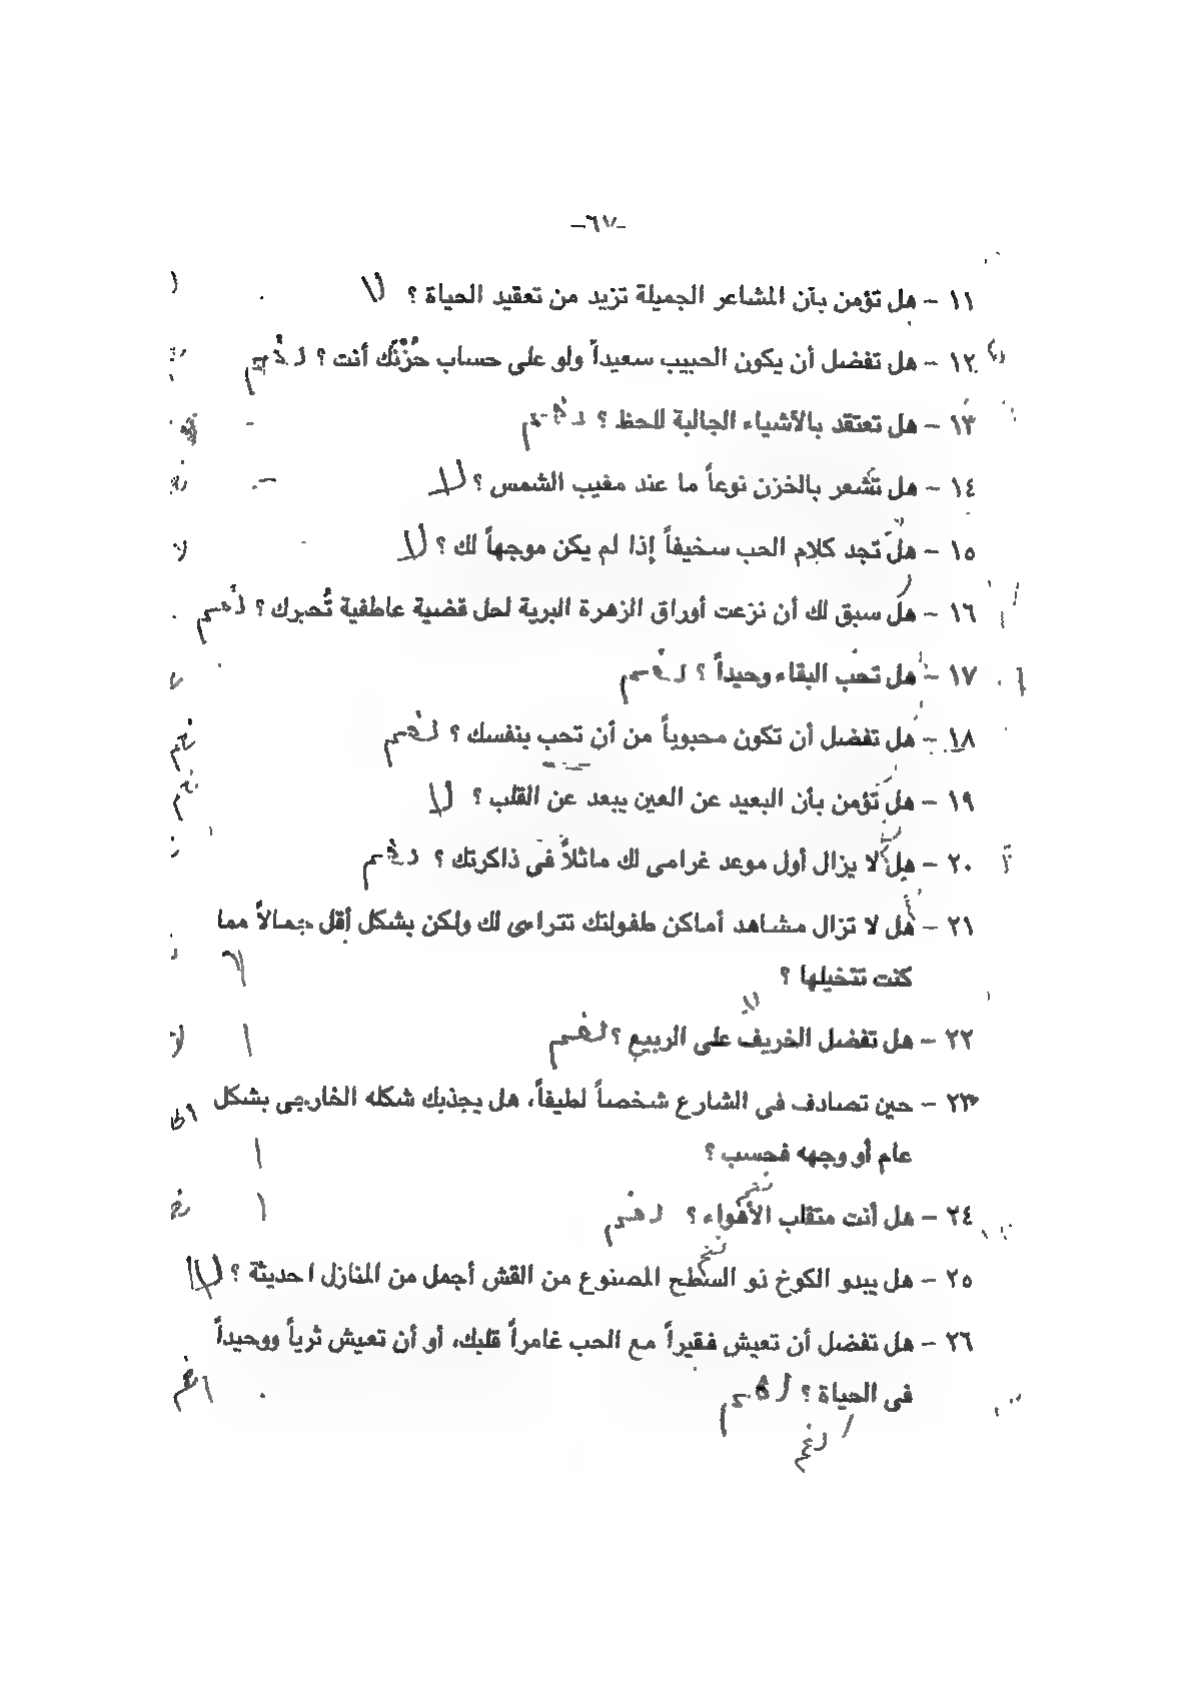 -٦٧-
١١ - هل تؤمن بأن المشاعر الجميلة تزيد من تعقيد الحياة ؟ لا
١٢ - هل تفضل أن يكون الحبيب سعيداً ولو على حساب حُزْنك أنت ؟ نعم
١٣ - هل تعتقد بالأشياء الجالبة للحظ ؟ نعم
١٤ - هل تشعر بالخزن نوعاً ما عند مغيب الشمس ؟ لا
١٥ - هل تجد كلام الحب سخيفاً إذا لم يكن موجهاً لك ؟ لا
١٦ - هل سبق لك أن نزعت أوراق الزهرة البرية لحل قضية عاطفية تُحبرك ؟ نعم
١٧ - هل تحب البقاء وحيداً ؟ نعم
١٨ - هل تفضل أن تكون محبوباً من أن تحب بنفسك ؟ نعم
١٩ - هل تؤمن بأن البعيد عن العين يبعد عن القلب ؟ لا
٢٠ - هل لا يزال أول موعد غرامى لك ماثلاً فى ذاكرتك ؟ نعم
٢١ - هل لا تزال مشاهد أماكن طفولتك تتراءى لك ولكن بشكل أقل جمالاً مما
كنت تتخيلها ؟
٢٢ - هل تفضل الخريف على الربيع ؟ نعم
٢٣ - حين تصادف فى الشارع شخصاً لطيفاً، هل يجذبك شكله الخارجى بشكل
عام أو وجهه فحسب ؟
٢٤ - هل أنت متقلب الأهواء ؟ نعم
٢٥ - هل يبدو الكوخ ذو السطح المصنوع من القش أجمل من المنازل احديثة ؟ لا
٢٦ - هل تفضل أن تعيش فقيراً مع الحب غامراً قلبك، أو أن تعيش ثرياً ووحيداً
فى الحياة ؟ نعم
نعم